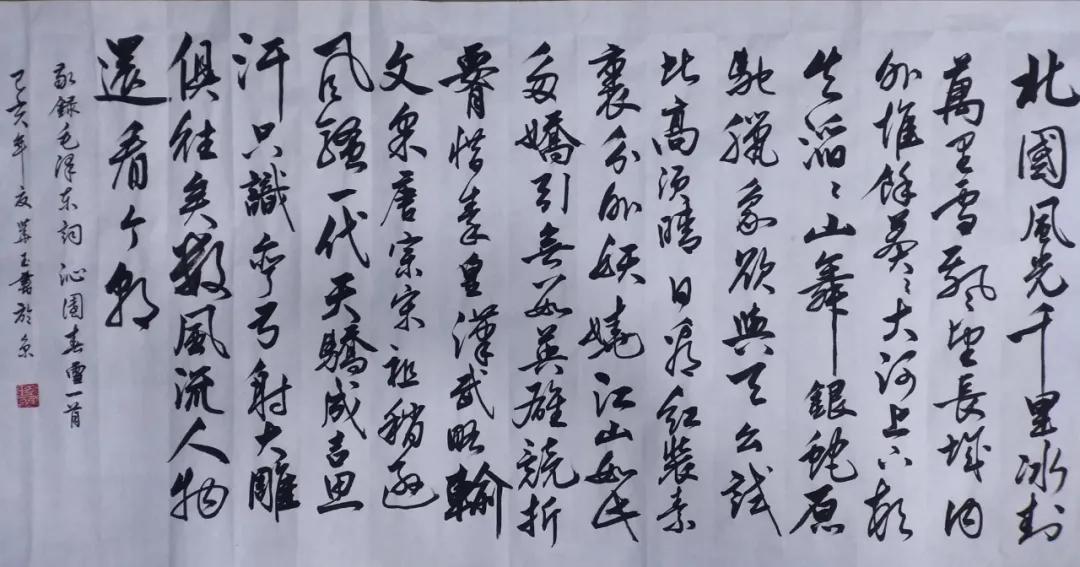 北國風光千里冰封
萬里雪飄望長城内
外惟餘莽〻大河上下頓
失滔〻山舞銀蛇原
馳臘象欲與天公試
比高須晴日看红裝素
裹分外妖嬈江山如此
多嬌引無數英雄競折
腰惜秦皇漢武略輸
文采唐宗宋祖稍遜
風騷一代天驕成吉思
汗只識彎弓射大雕
俱往矣數風流人物
還看今朝
敬録毛泽东詞沁園春雪一首
己亥年夏玉書於京